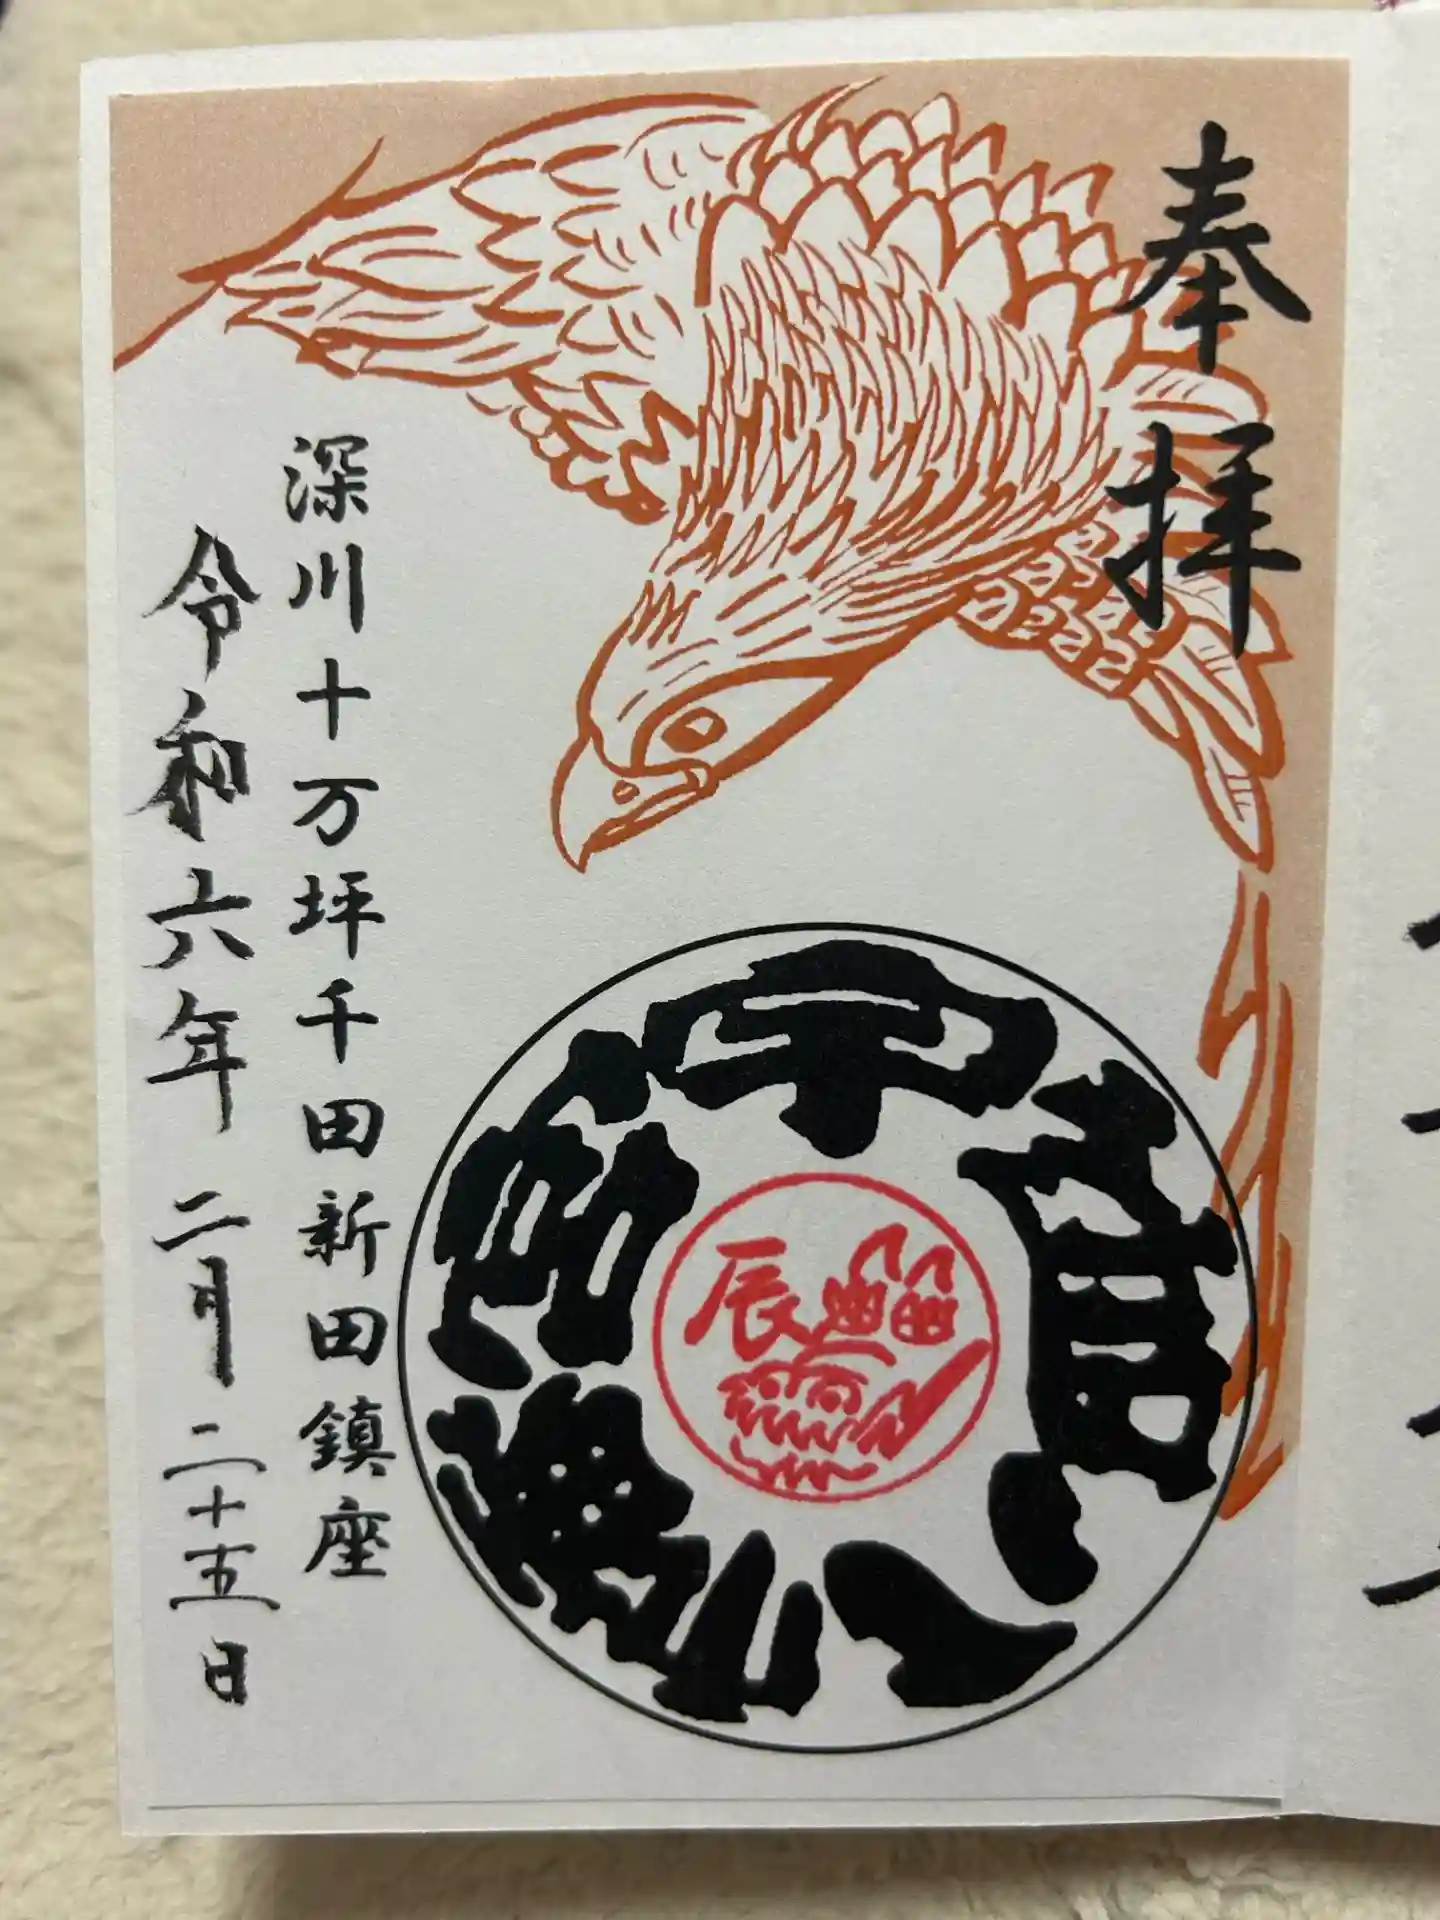 奉拝
宇迦八幡宮
辰
深川十万坪千田新田鎮座
令和六年二月二十五日